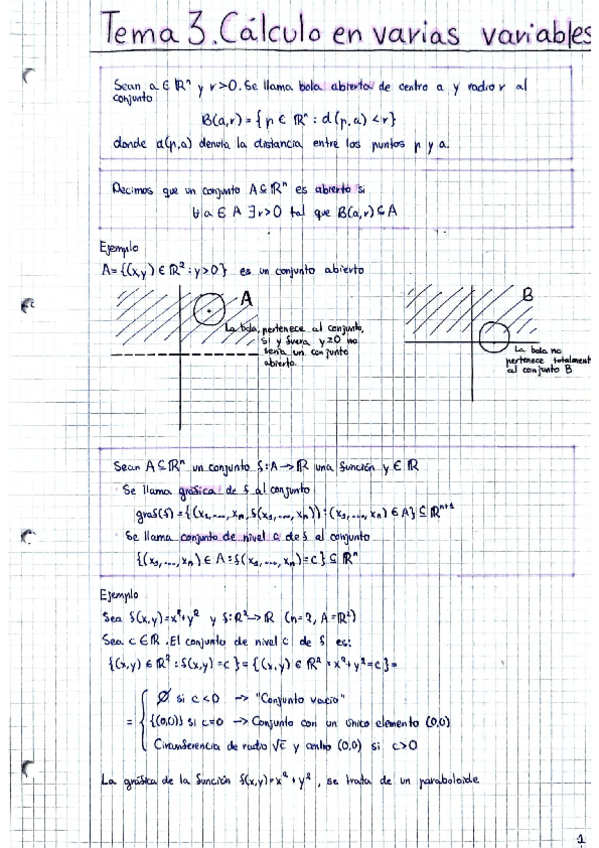 Tema 3. Cálculo en varias variables
Sean a ∈ ℝⁿ y r>0. Se llama bola abierta de centro a y radio r al
conjunto
B(a,r) = {p ∈ ℝⁿ : d(p,a) < r}
donde d(p,a) denota la distancia entre los puntos p y a.
Decimos que un conjunto A ⊆ ℝⁿ es abierto si
∀ a ∈ A ∃ r>0 tal que B(a,r) ⊆ A
Ejemplo
A = {(x,y) ∈ ℝ² : y>0} es un conjunto abierto
A
La bola, pertenece al conjunto,
si y fuera y≥0 no
sería un conjunto
abierto.
B
La bola no
pertenece totalment
al conjunto B
Sean A ⊆ ℝⁿ un conjunto f: A → ℝ una función y ∈ ℝ
· Se llama gráfica de f al conjunto
graf(f) = {(x₁, ..., xₙ, f(x₁, ..., xₙ)) : (x₁, ..., xₙ) ∈ A} ⊆ ℝⁿ⁺¹
· Se llama conjunto de nivel c de f al conjunto
{(x₁, ..., xₙ) ∈ A : f(x₁, ..., xₙ) = c} ⊆ ℝⁿ
Ejemplo
Sea f(x,y) = x²+y² y f: ℝ² → ℝ (n=2, A=ℝ²)
Sea c ∈ ℝ. El conjunto de nivel c de f es:
{(x,y) ∈ ℝ² : f(x,y) = c} = {(x,y) ∈ ℝ² : x²+y² = c} =
∅ si c<0 → "Conjunto vacío"
= {(0,0)} si c=0 → Conjunto con un único elemento (0,0)
Circunferencia de radio √c y centro (0,0) si c>0
La gráfica de la función f(x,y) = x² + y², se trata de un paraboloide
1